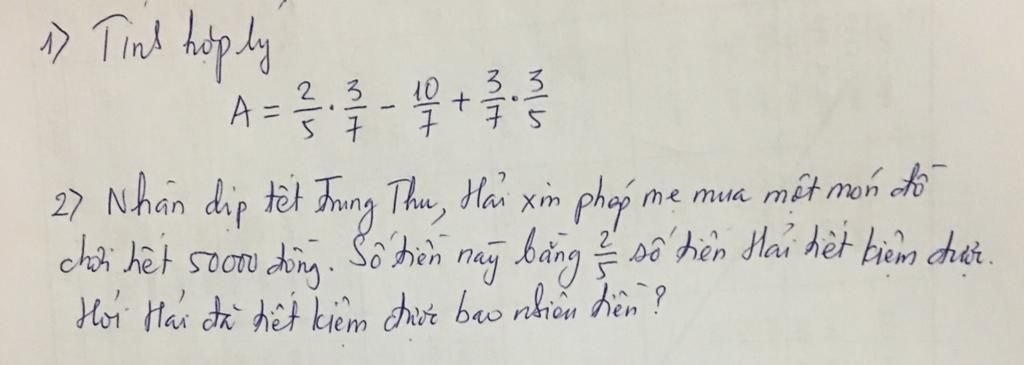 1) Tính hợp lý
A = 2/5 · 3/7 - 10/7 + 3/7 · 3/5
2) Nhân dịp tết Trung Thu, Hải xin phép mẹ mua một món đồ
chơi hết 50000 đồng. Số tiền này bằng 2/5 số tiền Hải tiết kiệm được.
Hỏi Hải đã tiết kiệm được bao nhiêu tiền?